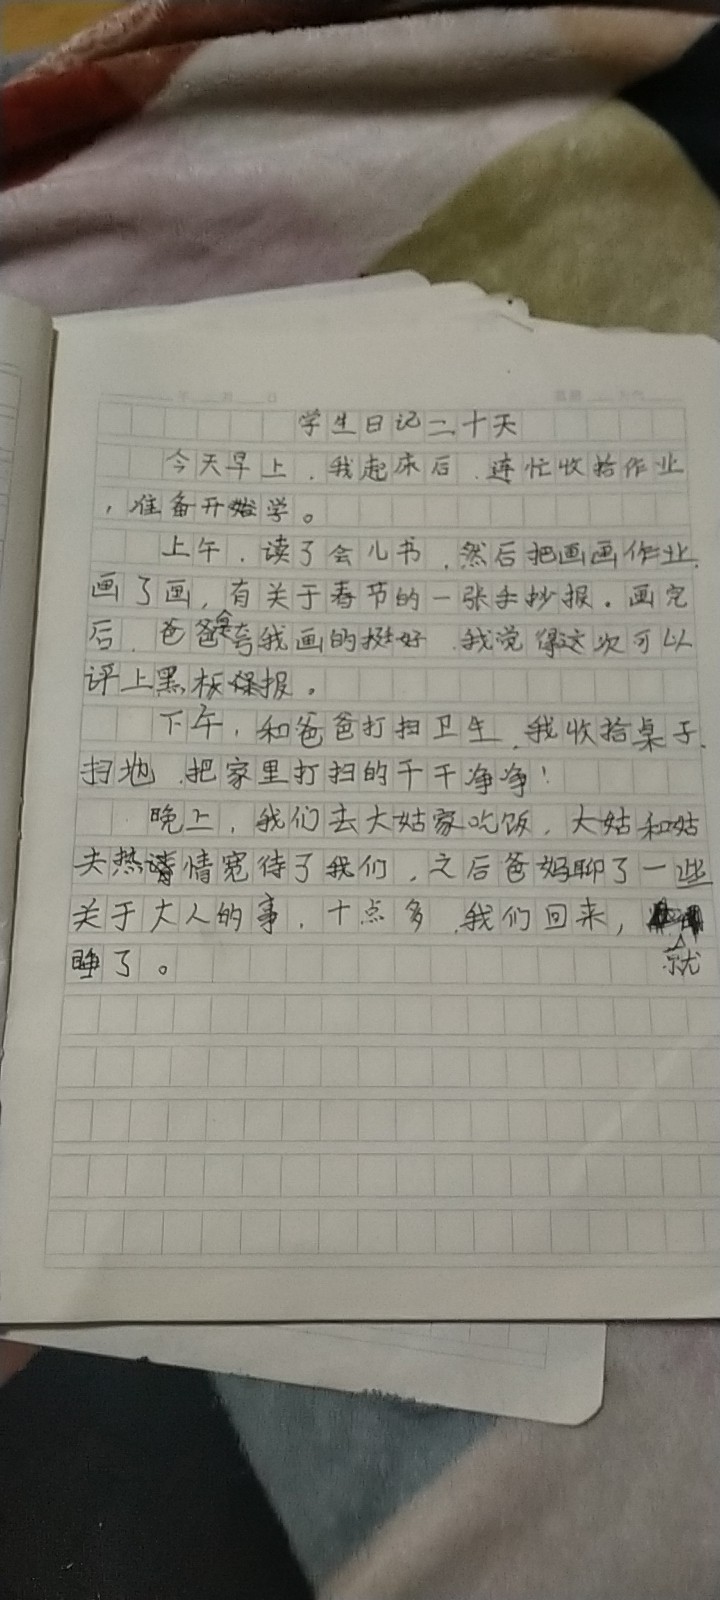 学生日记二十天
今天早上，我起床后，连忙收拾作业
，准备开始学。
上午，读了会儿书，然后把画画作业，
画了画，有关于春节的一张手抄报。画完
后，爸爸会夸我画的挺好，我说得这次可以
评上黑板报。
下午，和爸爸打扫卫生，我收拾桌子，
扫地，把家里打扫的干干净净！
晚上，我们去大姑家吃饭，大姑和姑
夫热情宽待了我们，之后爸妈聊了一些
关于大人的事，十点多，我们回来，就
睡了。